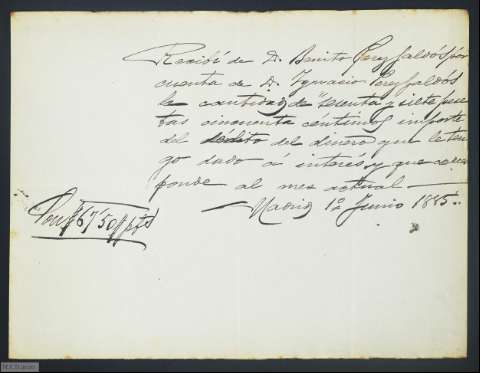 Recibí de D. Benito Perez Galdós por
cuenta de D. Ignacio Perez Galdós
la cantidad de "sesenta y siete pese
tas cincuenta céntimos importe
del rédito del dinero que le ten
go dado á interés, y que corres
ponde al mes actual
Madrid 1º Junio 1885.
Son # 67'50 # pts